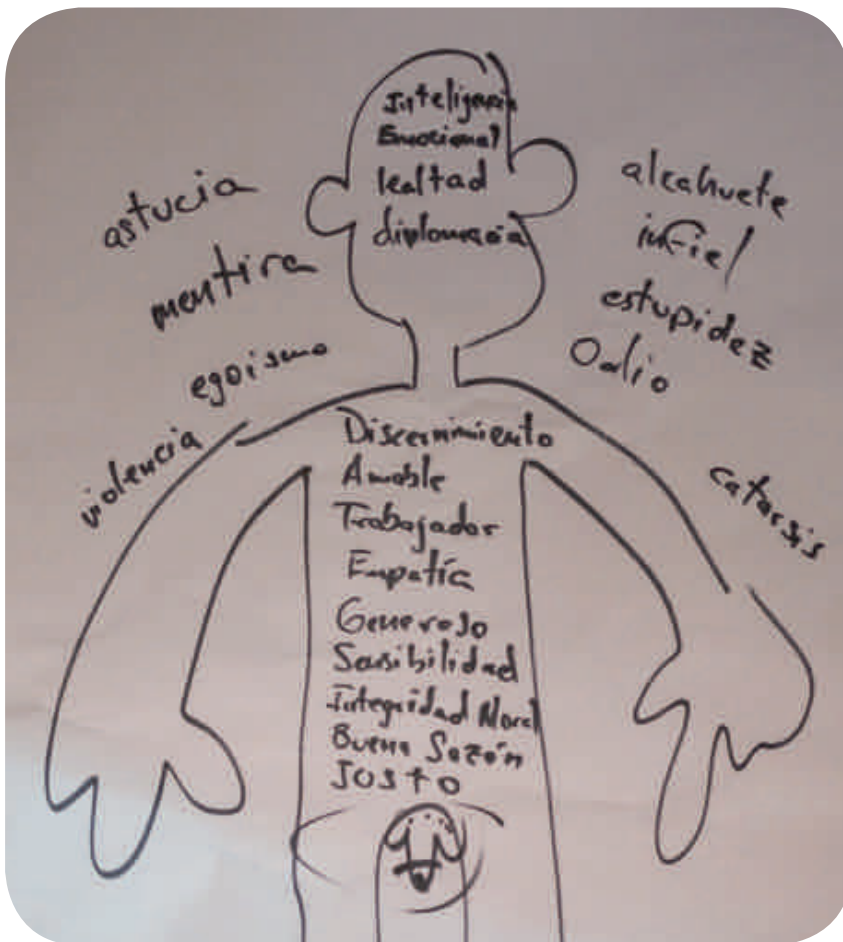 Inteligencia
Emocional
lealtad
diplomacia
astucia
mentira
egoismo
violencia
alcahuete
infiel
estupidez
Odio
catarsis
Discernimiento
Amable
Trabajador
Empatía
Generoso
Sensibilidad
Integridad Moral
Buena Sazón
JUSTO